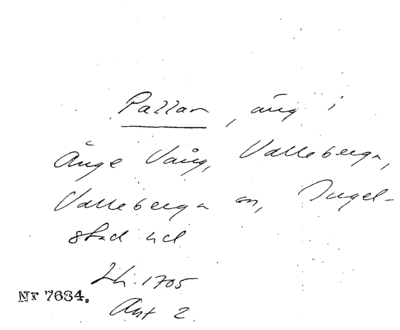 Pallar, äng i
Änge Vång, Valleberga,
Valleberga sn, Ingel-
stad hd
Lh. 1705
Akt 2
Nr 7634.